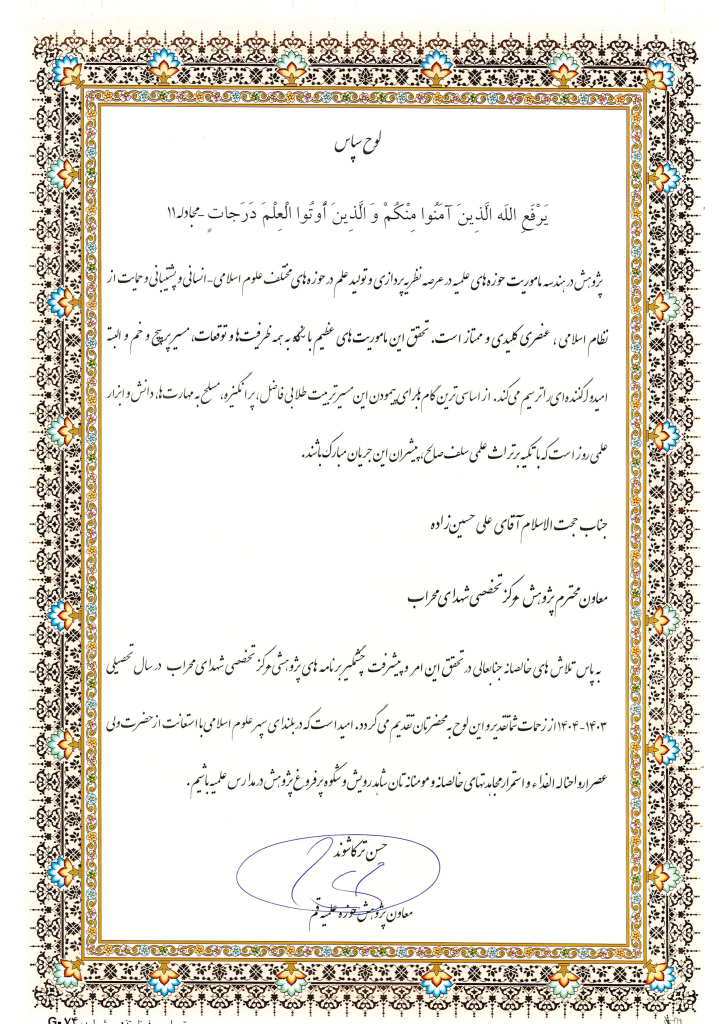 لوح سپاس
یَرْفَعِ اللَه الَّذِینَ آمَنُوا مِنْکُمْ وَ الَّذِینَ أُوتُوا الْعِلْمَ دَرَجاتٍ -مجادله ۱۱
پژوهش در هندسه ماموریت حوزه های علمیه در عرصه نظریه پردازی و تولید علم در حوزه های مختلف علوم اسلامی-انسانی و پشتیبانی و حمایت از
نظام اسلامی ، عنصری کلیدی و ممتاز است. تحقق این ماموریت های عظیم با توجه به همه ظرفیت ها و توقعات، مسیر پر پیچ و خم و البته
امیدوارکننده ای را ترسیم می کند. از اساسی ترین گام ها برای پیمودن این مسیر تربیت طلابی فاضل، پرانگیزه، مسلح به مهارت ها، دانش و ابزار
علمی روز است که با تکیه بر تراث علمی سلف صالح، پیشران این جریان مبارک باشند.
جناب حجت الاسلام آقای علی حسین زاده
معاون محترم پژوهش مرکز تخصصی شهدای محراب
به پاس تلاش های خالصانه جنابعالی در تحقق این امر و پیشرفت چشمگیر برنامه های پژوهشی مرکز تخصصی شهدای محراب در سال تحصیلی
۱۴۰۳-۱۴۰۴ از زحمات شما تقدیر و این لوح به محضرتان تقدیم می گردد. امید است که در بلندای سپهر علوم اسلامی با استعانت از حضرت ولی
عصر ارواحنا له الفداء و استمرار مجاهدتهای خالصانه و مومنانه تان شاهد رویش و شکوه پرفروغ پژوهش در مدارس علمیه باشیم.
حسن ترکاشوند
معاون پژوهش حوزه علمیه قم